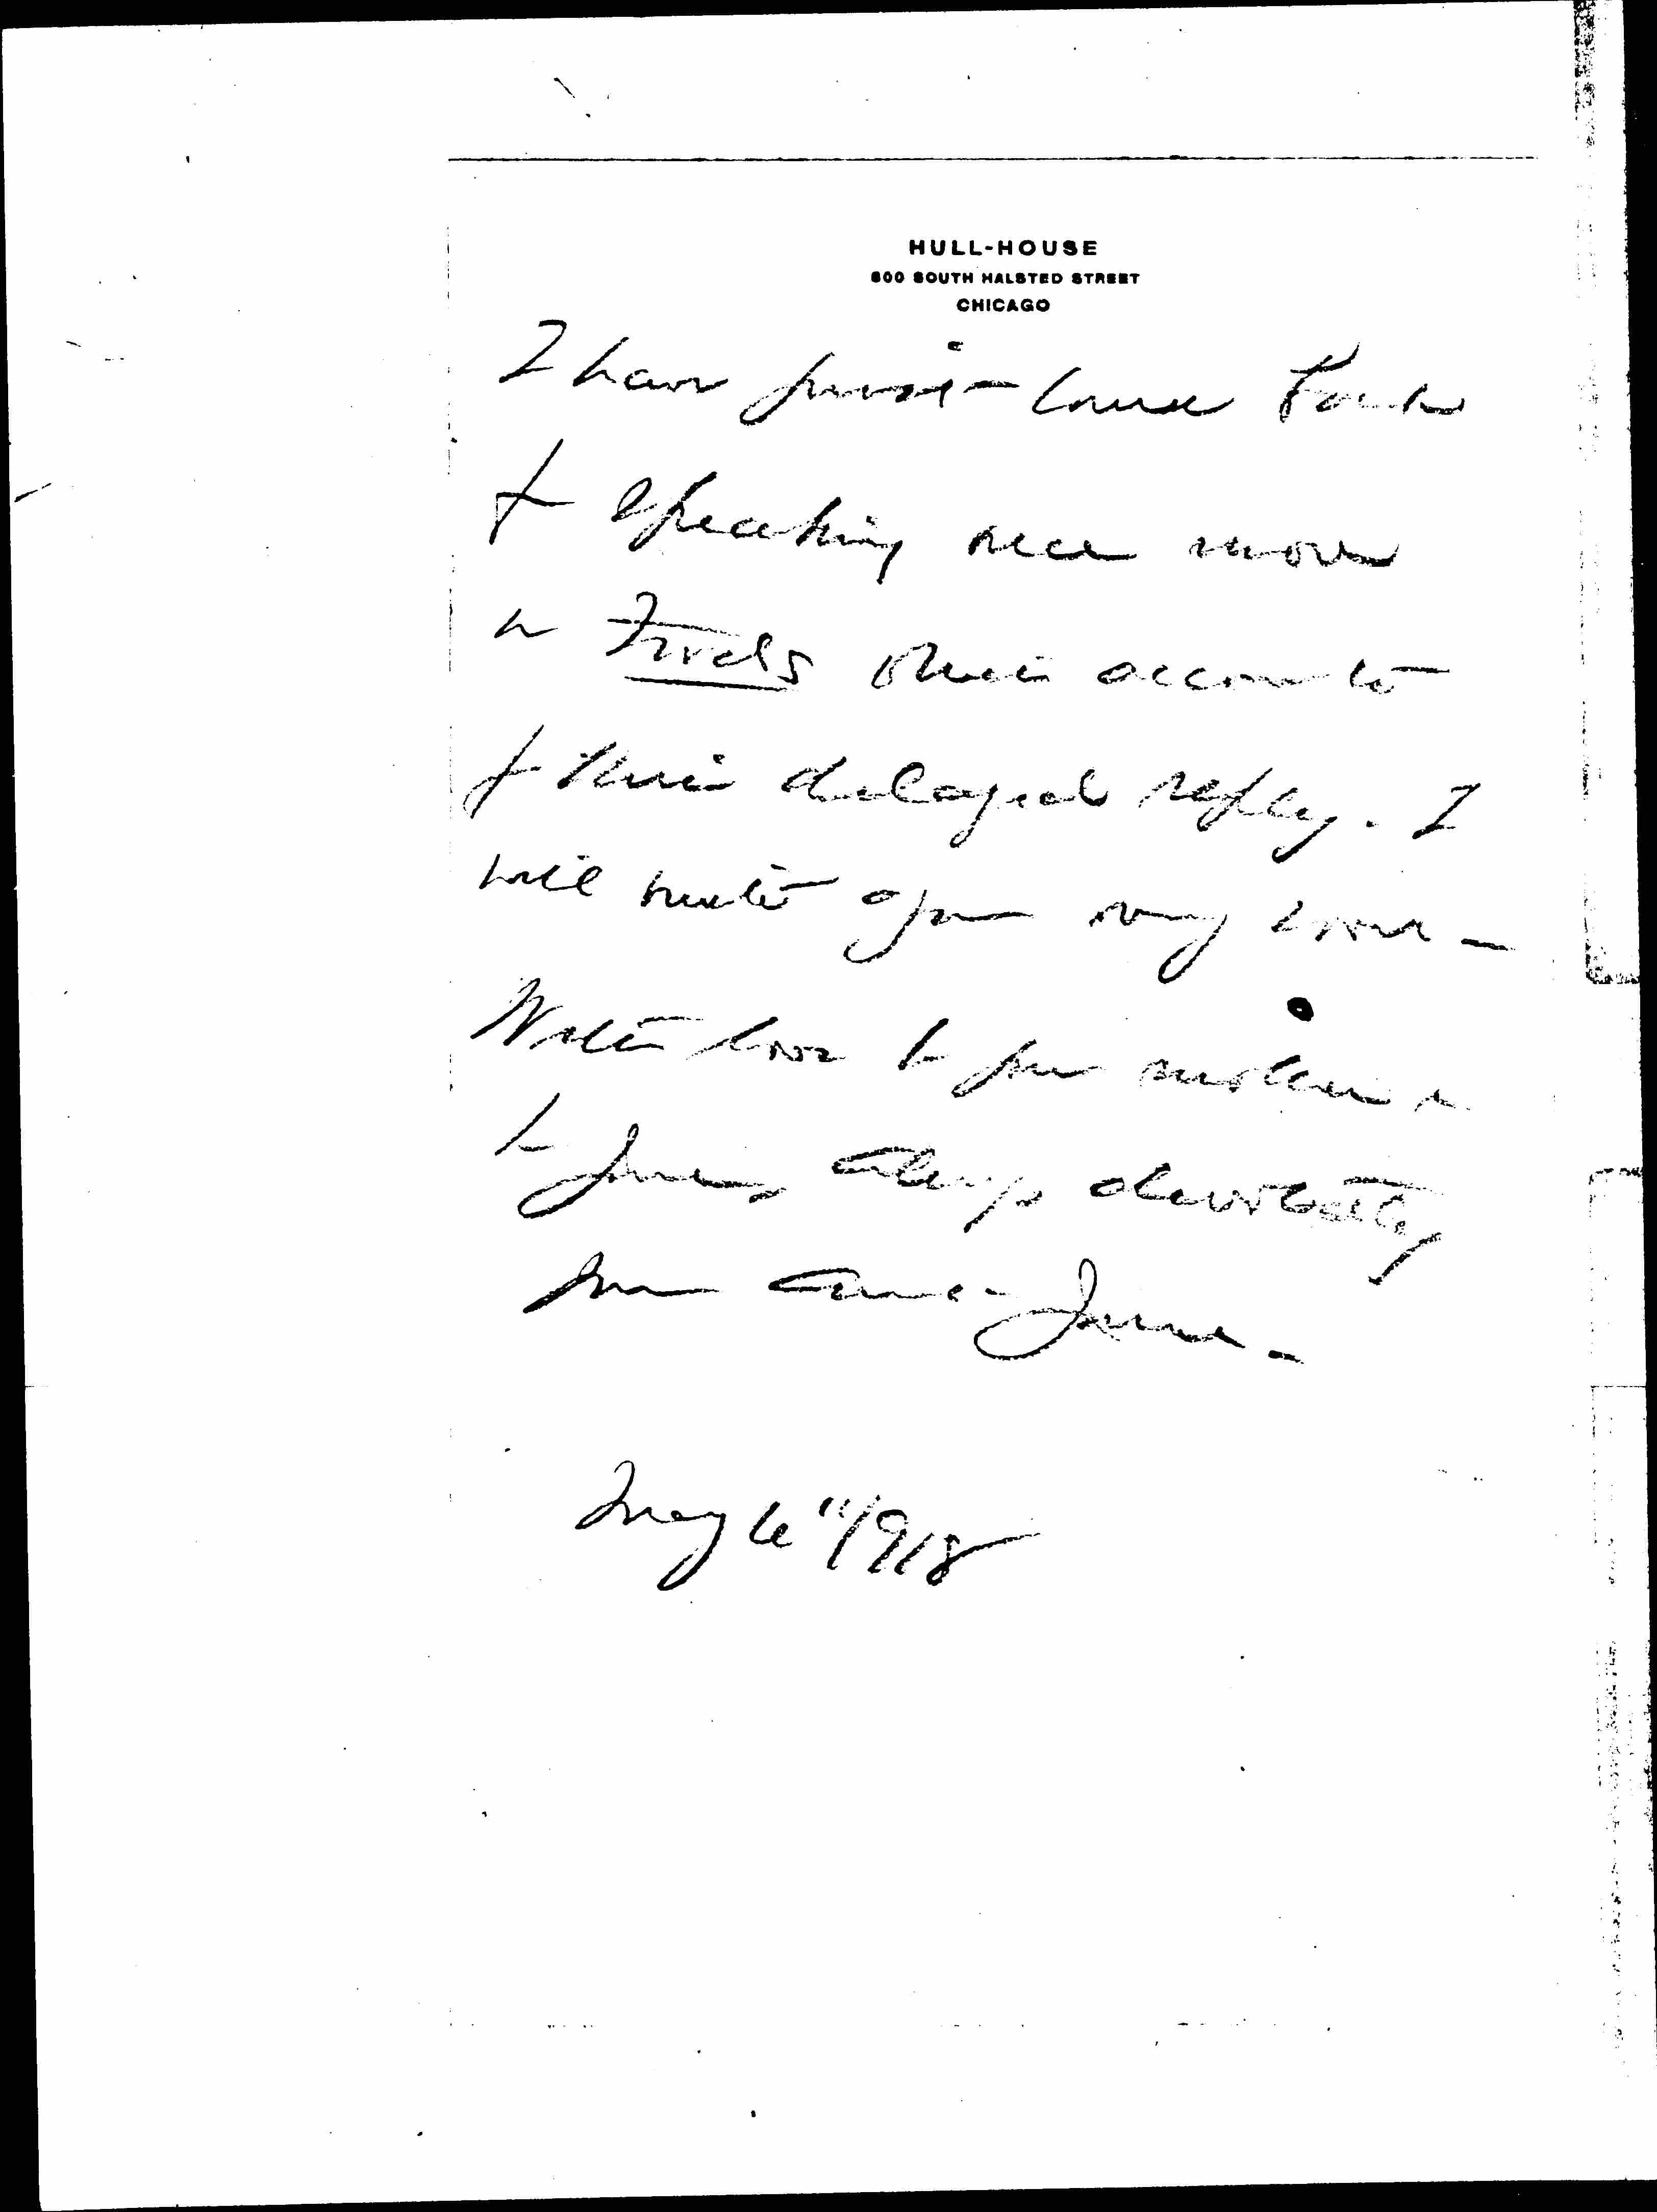 HULL-HOUSE
800 SOUTH HALSTED STREET
CHICAGO
I have just come back
f speaking once more
on Foods which accounts
f this delayed reply. I
will write again very soon –
With love to your mother &
to yours, always devotedly
your Aunt Jane –
May 6" 1918